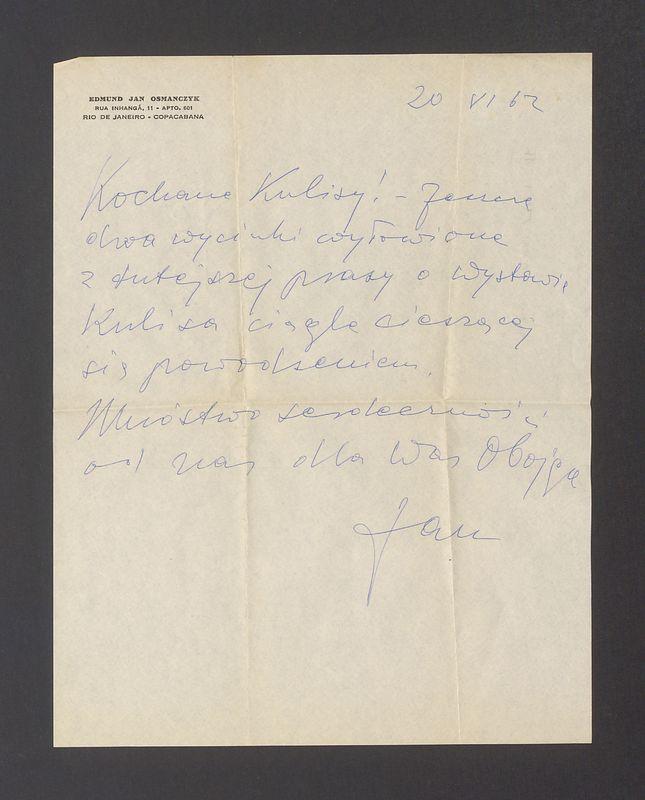 EDMUND JAN OSMANCZYK
RUA INHANGÁ, 11 - APTO. 601
RIO DE JANEIRO - COPACABANA
20 VI 62
Kochane Kulisy! -
dwa wycinki wyłowione
z tutejszej prasy o wystawie
Kulisa ciągle cieszącej
się powodzeniem.
Mnóstwo serdeczności
od nas dla Was Obojga
Jan